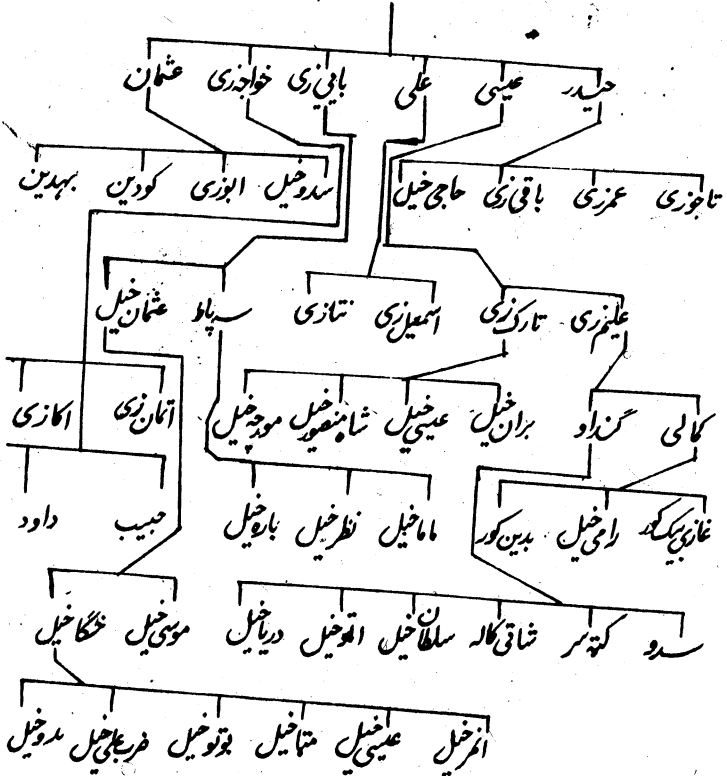 حیدر عیسی علی بایی زی خواجه زی عثمان
تاجوزی عمرزی باقی زی حاجی خیل سدوخیل ابوزی کودین بهدین
علیم زی تارک زی اسمعیل زی نتازی سه پاط عثمان خیل
کمالی گنداو بران خیل عیسی خیل شاه منصور خیل مورچه خیل اتمان زی اکازی
غازی بیک کور رامی خیل بدین کور ماما خیل نظر خیل بارو خیل حبیب داود
سدو کته سر شاقی کاله سلطان خیل اتو خیل دریا خیل موسی خیل خنگا خیل
انمر خیل عیسی خیل متا خیل بوتو خیل ضرب علی خیل بدو خیل